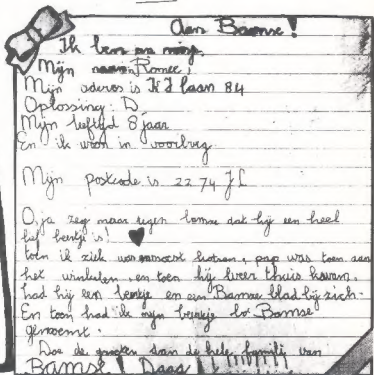 Aan Bamse!
Ik ben
Mijn naam Romee,
Mijn adres is laan 84
Oplossing: D
Mijn leeftijd 8 jaar
En ik woon in voorburg
Mijn postcode is 22 74
O ja zeg maar tegen bamse dat hij een heel
lief beertje is! ♥
toen ik ziek was moest hoesten, pap was toen aan
het winkelen en toen hij weer thuis kwam.
had hij een beertje en een Bamse blad bij zich.
En toen had ik mijn beertje Bamse
genoemt.
Doe de groeten aan de hele familj van
Bamse! Daag!!!!!!!!